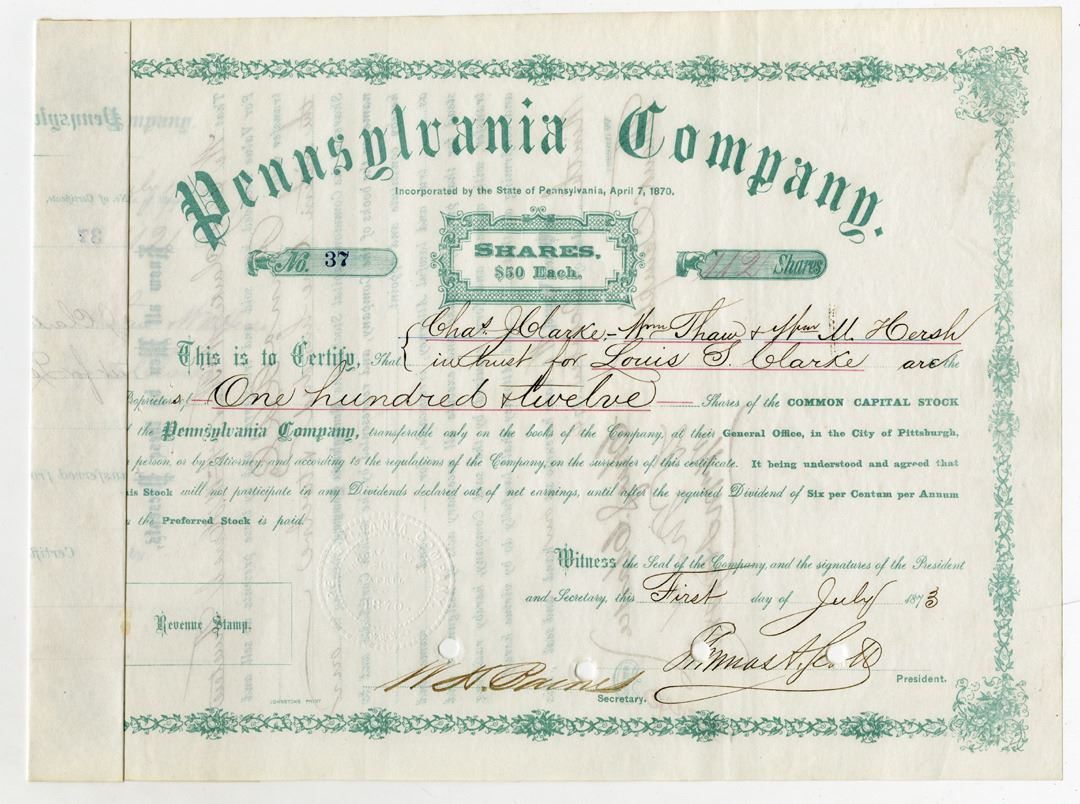 Pennsylvania Company.
Incorporated by the State of Pennsylvania, April 7, 1870.
No. 37
SHARES,
$50 Each.
112 Shares
Chas. J. Clarke - Wm Thaw & Wm M. Hersh
This is to Certify, That in trust for Louis S. Clarke are the
Proprietors of One hundred & twelve Shares of the COMMON CAPITAL STOCK
the Pennsylvania Company, transferable only on the books of the Company, at their General Office, in the City of Pittsburgh,
person, or by Attorney, and according to the regulations of the Company, on the surrender of this certificate. It being understood and agreed that
is Stock will not participate in any Dividends declared out of net earnings, until after the required Dividend of Six per Centum per Annum
the Preferred Stock is paid.
Witness the Seal of the Company, and the signatures of the President
and Secretary, this First day of July 1873
Revenue Stamp.
1870
Thomas A. Scott
President.
Secretary.
JOHNSTONS PRINT